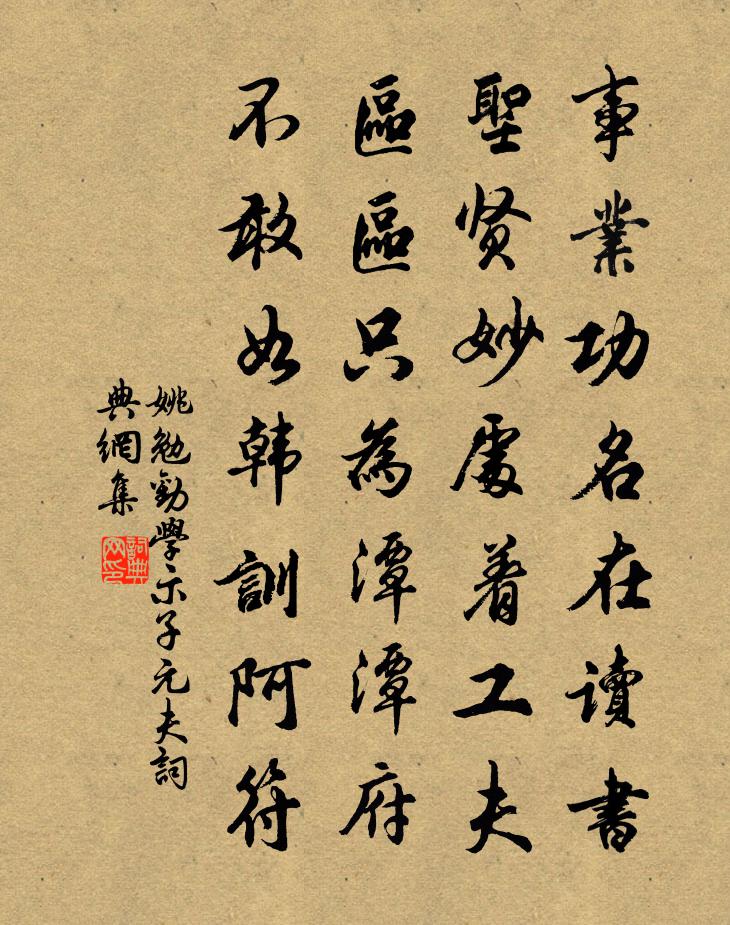 事業功名在讀書
聖贤妙處着工夫
區區只為潭潭府
不敢如韩訓阿符
姚勉勸學示子元夫詞
典網集
詞典
网印